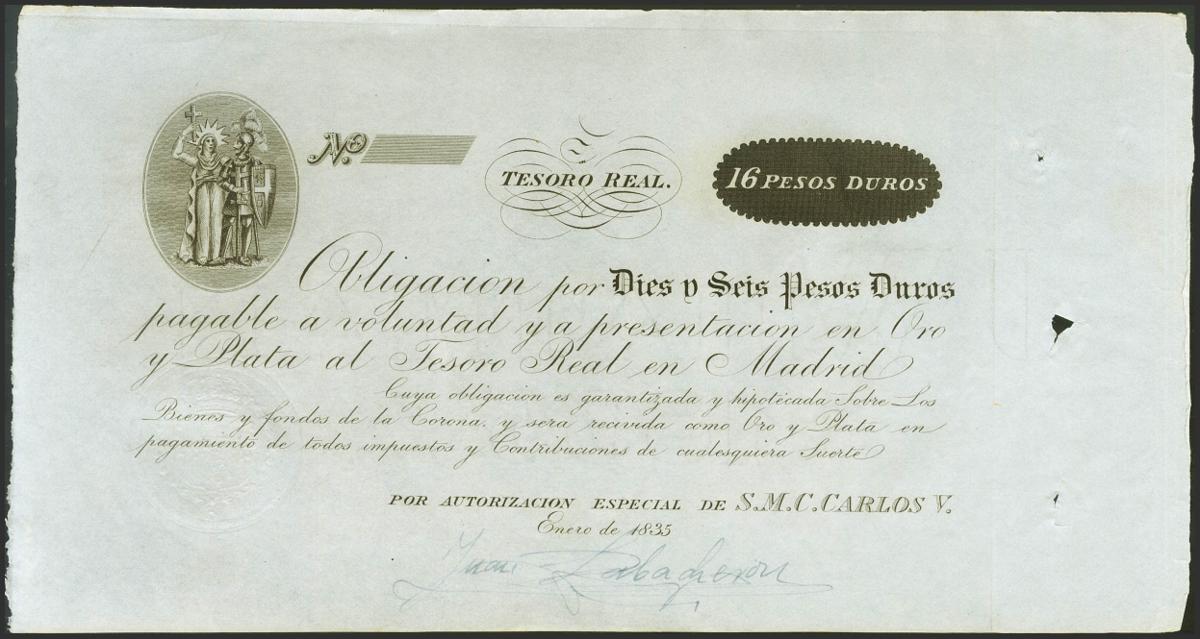 No.
TESORO REAL.
16 PESOS DUROS
Obligacion por Dies y Seis Pesos Duros
pagable a voluntad y a presentacion en Oro
y Plata al Tesoro Real en Madrid
Cuya obligacion es garantizada y hipotécada Sobre Los
Bienes y fondos de la Corona. y sera recivida como Oro y Plata en
pagamiento de todos impuestos y Contribuciones de cualesquiera Suerte
POR AUTORIZACION ESPECIAL DE S.M.C. CARLOS V.
Enero de 1835
Juan